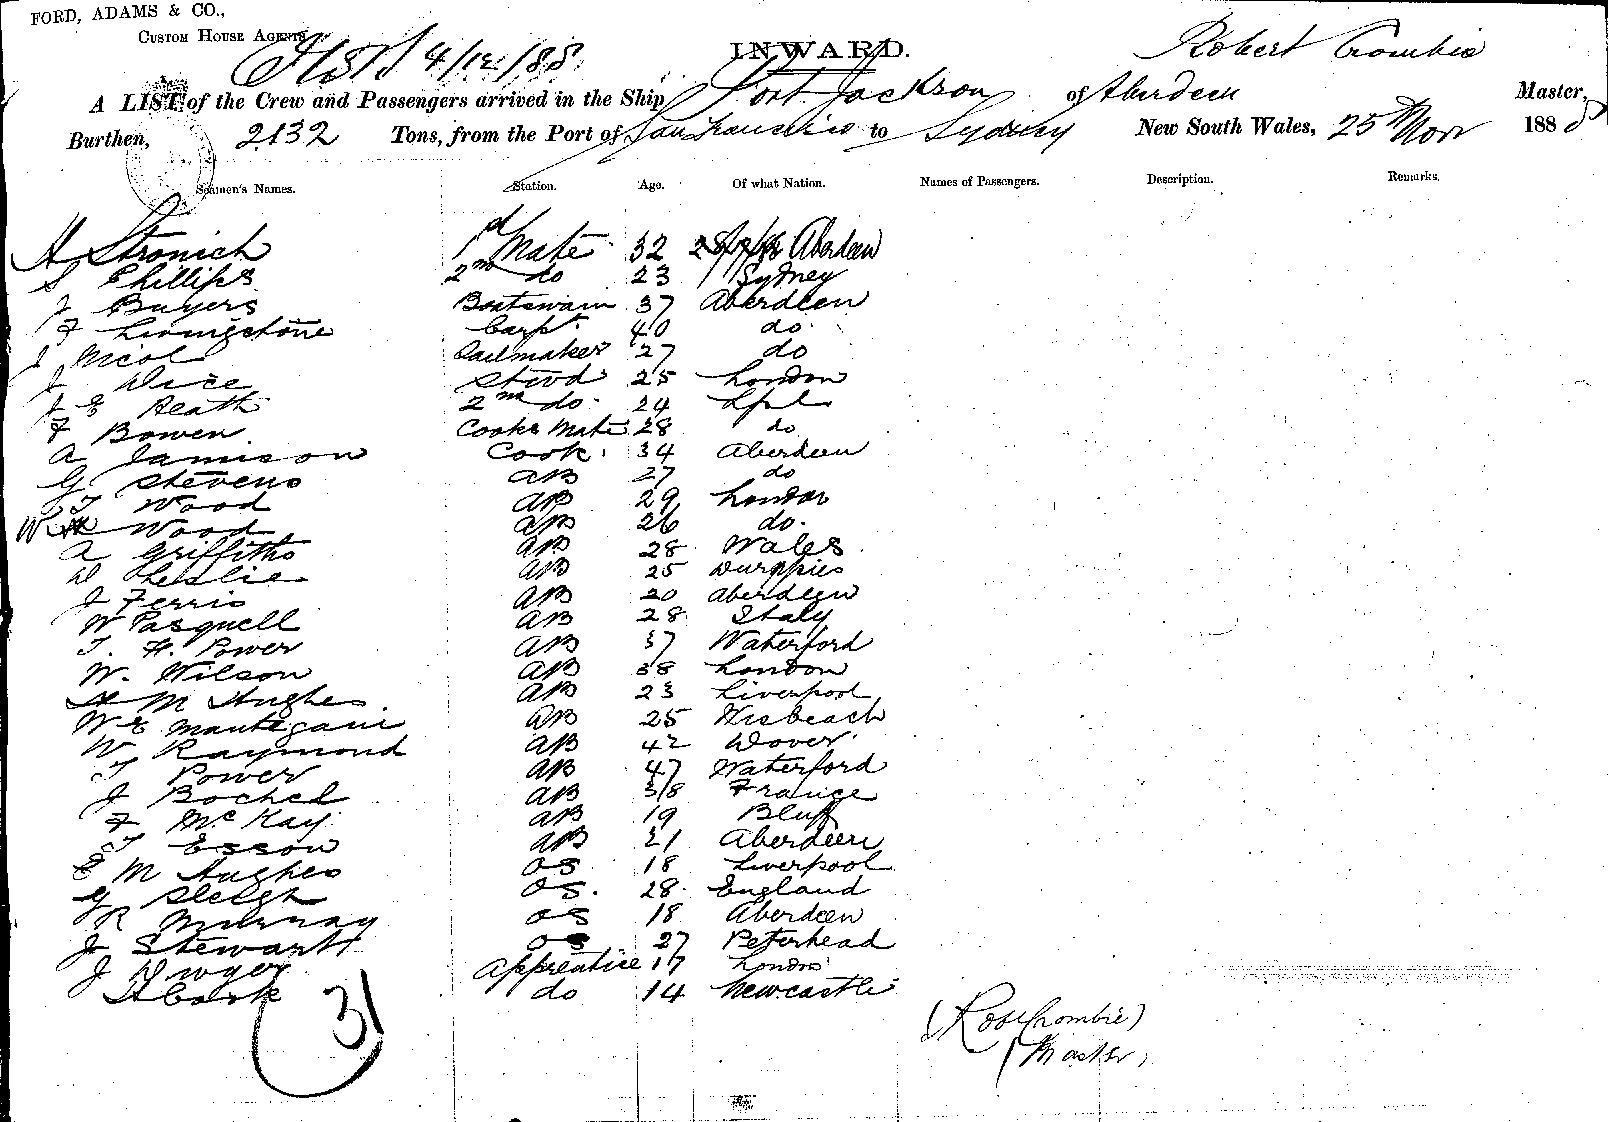 FORD, ADAMS & CO.,
CUSTOM HOUSE AGENTS
4/12/88
INWARD.
Robert Crombie
A LIST of the Crew and Passengers arrived in the Ship Port Jackson of Aberdeen Master,
Burthen, 2132 Tons, from the Port of San Francisco to Sydney New South Wales, 25th Nov 1888
Seamen's Names. Station. Age. Of what Nation. Names of Passengers. Description. Remarks.
A Stronich 1st Mate 32 Aberdeen
S Phillips 2nd do 23 Sydney
J Buyers Boatswain 37 Aberdeen
F Livingstone Carpt. 40 do.
J Nicol Sailmaker 27 do
J Dice Stwd 25 London
J E Heath 2nd do. 24 Lpl
F Bowen Cooks Mate 28 do
A Jamieson Cook. 34 Aberdeen
G Stevens AB 27 do
T Wood AB 29 London
W Wood AB 26 do.
A Griffiths AB 28 Wales
D Leslie AB 25
J Ferris AB 20 Aberdeen
W Pasquell AB 28 Italy
T. H. Power AB 37 Waterford
W. Wilson AB 38 London
H M Hughes AB 23 Liverpool
W E Mantegani AB 25 Wisbeach
W Raymond AB 42 Dover
T Power AB 47 Waterford
J Bochel AB 38 France
F McKay AB 19 Bluff
T Esson AB 21 Aberdeen
E M Hughes OS 18 Liverpool
G Sleigh OS. 28 England
R Murray OS 18 Aberdeen
J Stewart OS 27 Peterhead
J Dwyer Apprentice 17 London
H Cook do 14 Newcastle
31
(Robt Crombie)
(Master)